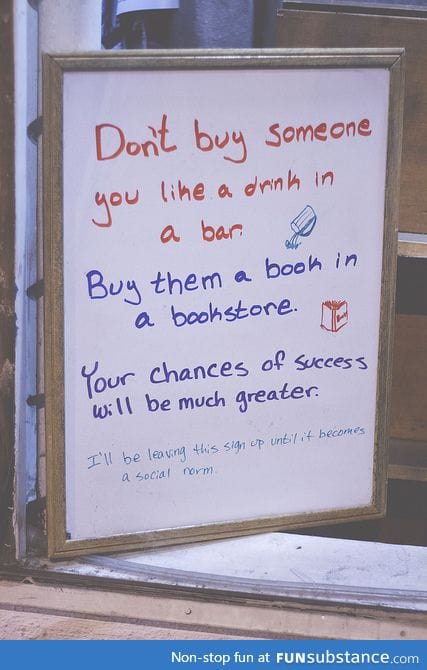 Don't buy someone
you like a drink in
a bar.
Buy them a book in
a bookstore.
Your chances of success
will be much greater.
I'll be leaving this sign up until it becomes
a social norm.
Non-stop fun at FUNsubstance.com